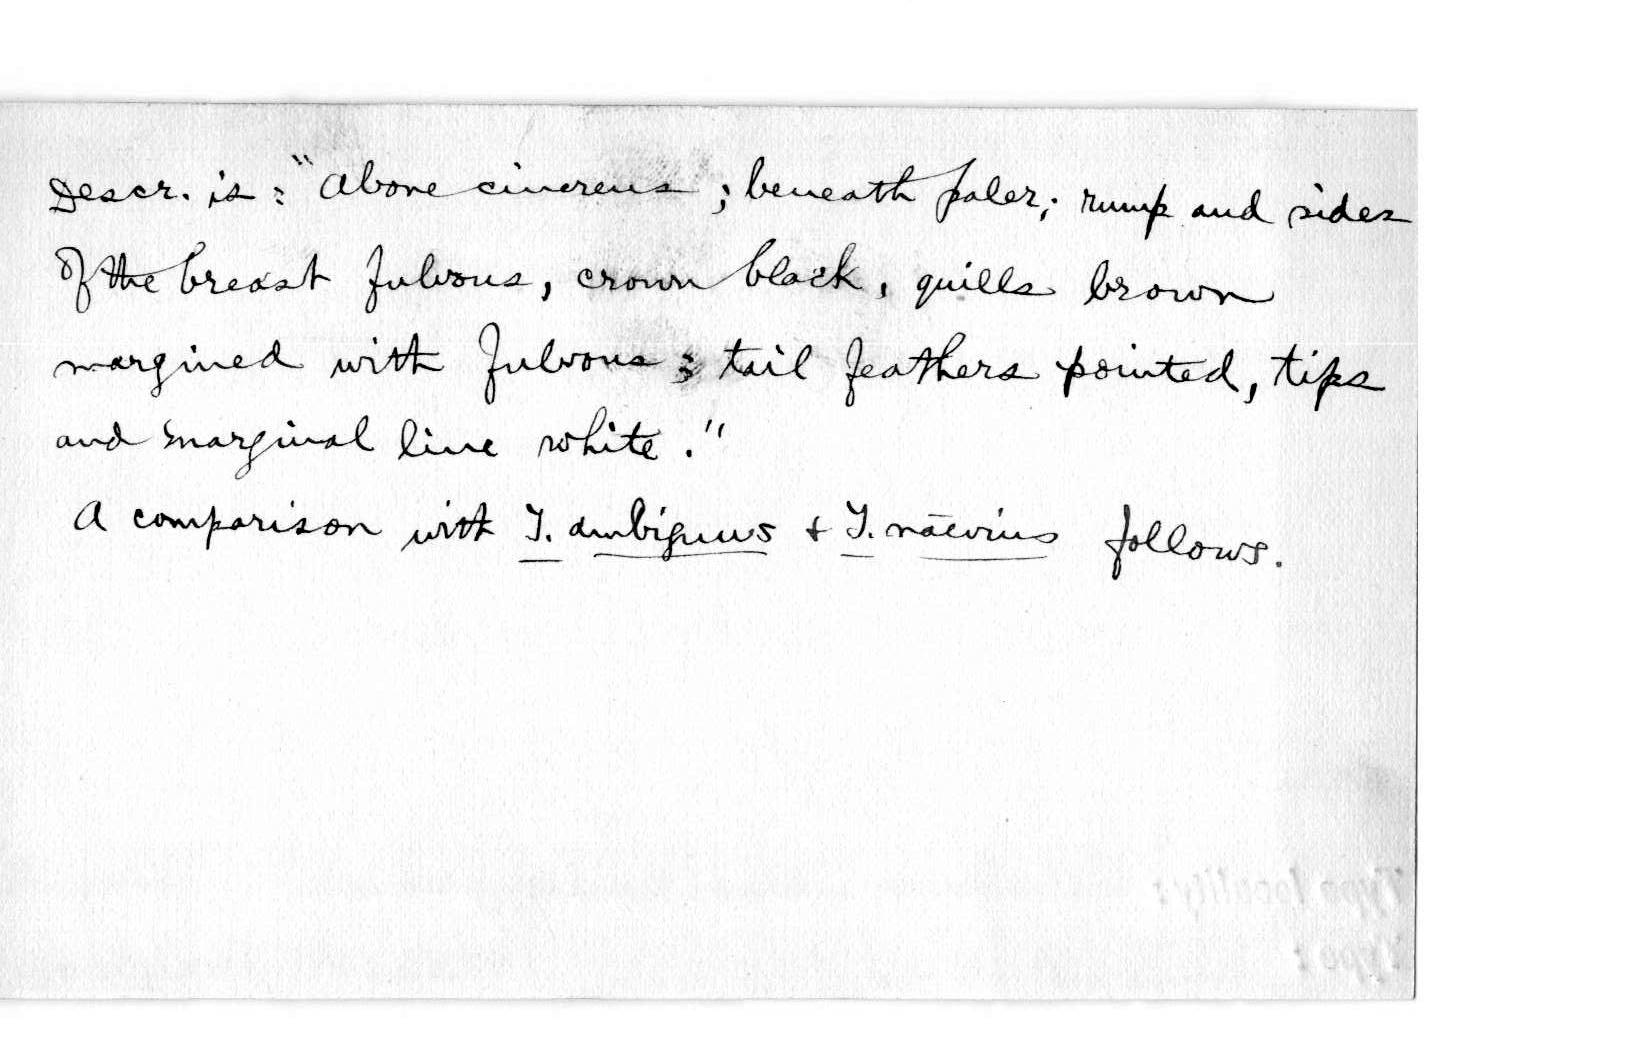 Descr. is: "Above cinereus; beneath paler; rump and sides
of the breast fulvous, crown black, quills brown
margined with fulvous; tail feathers pointed, tips
and marginal line white."
A comparison with T. ambiguus + T. naevius follows.
Type locality:
Type: